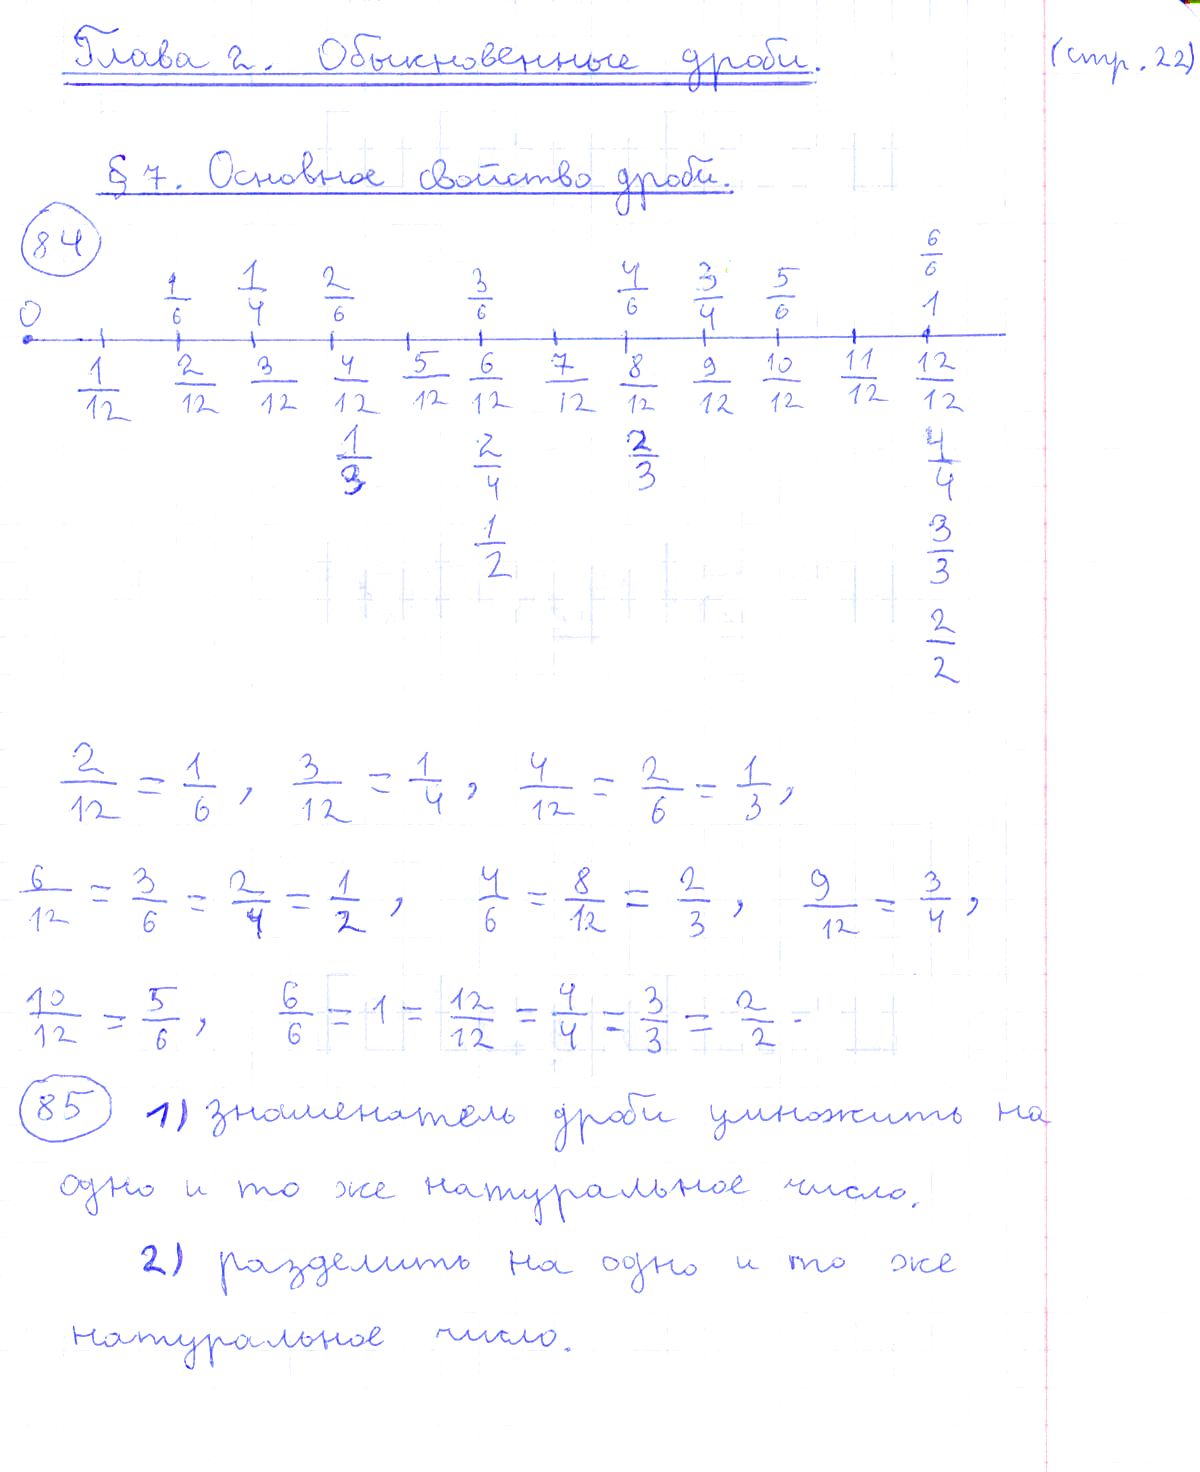 Глава 2. Обыкновенные дроби. (стр. 22)
§ 7. Основное свойство дроби.
84
0 1/6 1/4 2/6 3/6 4/6 3/4 5/6 6/6 1
1/12 2/12 3/12 4/12 5/12 6/12 7/12 8/12 9/12 10/12 11/12 12/12
1/3 2/4 2/3 4/4
1/2 3/3
2/2
2/12 = 1/6, 3/12 = 1/4, 4/12 = 2/6 = 1/3,
6/12 = 3/6 = 2/4 = 1/2, 4/6 = 8/12 = 2/3, 9/12 = 3/4,
10/12 = 5/6, 6/6 = 1 = 12/12 = 4/4 = 3/3 = 2/2.
85 1) знаменатель дроби умножить на
одно и то же натуральное число.
2) разделить на одно и то же
натуральное число.